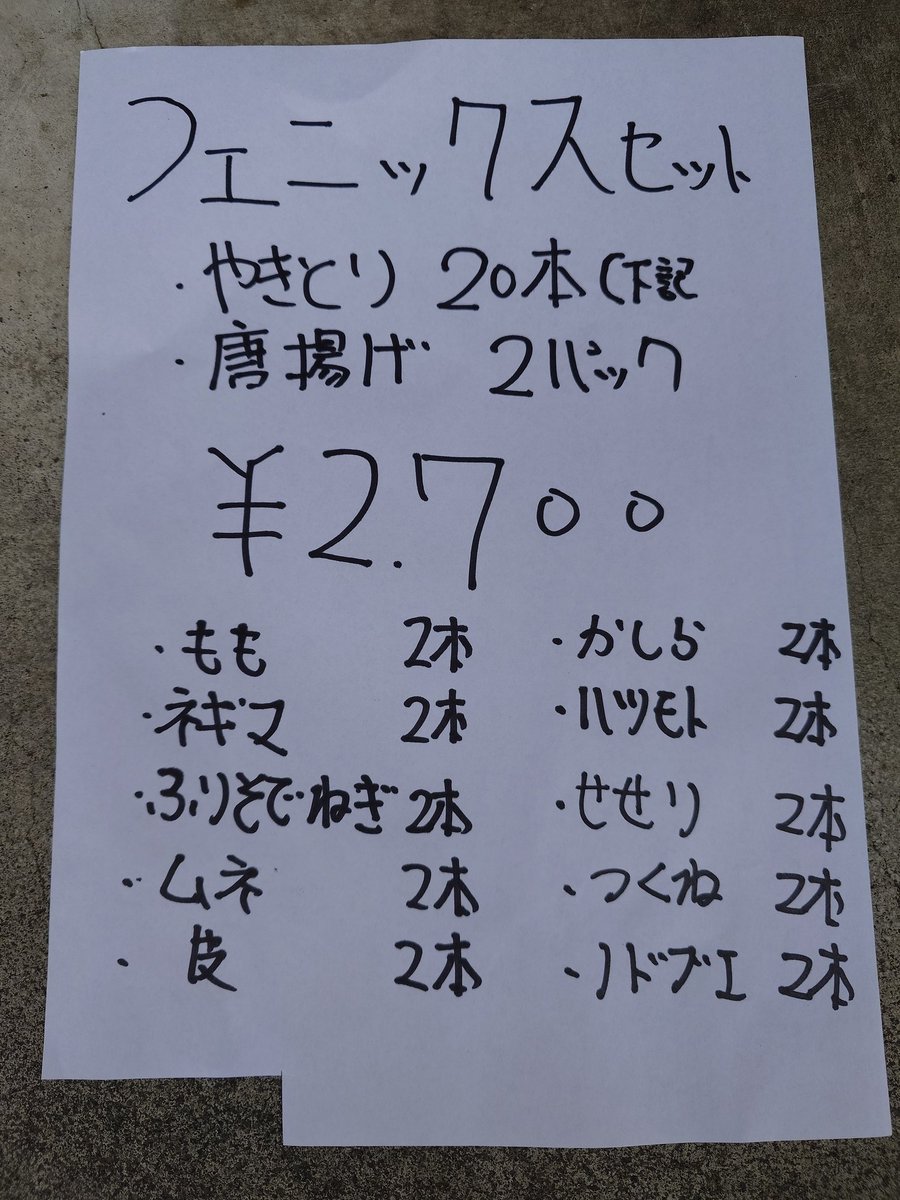 フェニックスセット
・やきとり 20本(下記
・唐揚げ 2パック
¥2.700
・もも 2本
・ネギマ 2本
・ふりそでねぎ 2本
・ムネ 2本
・皮 2本
・かしら 2本
・ハツモト 2本
・せせり 2本
・つくね 2本
・ノドブエ 2本